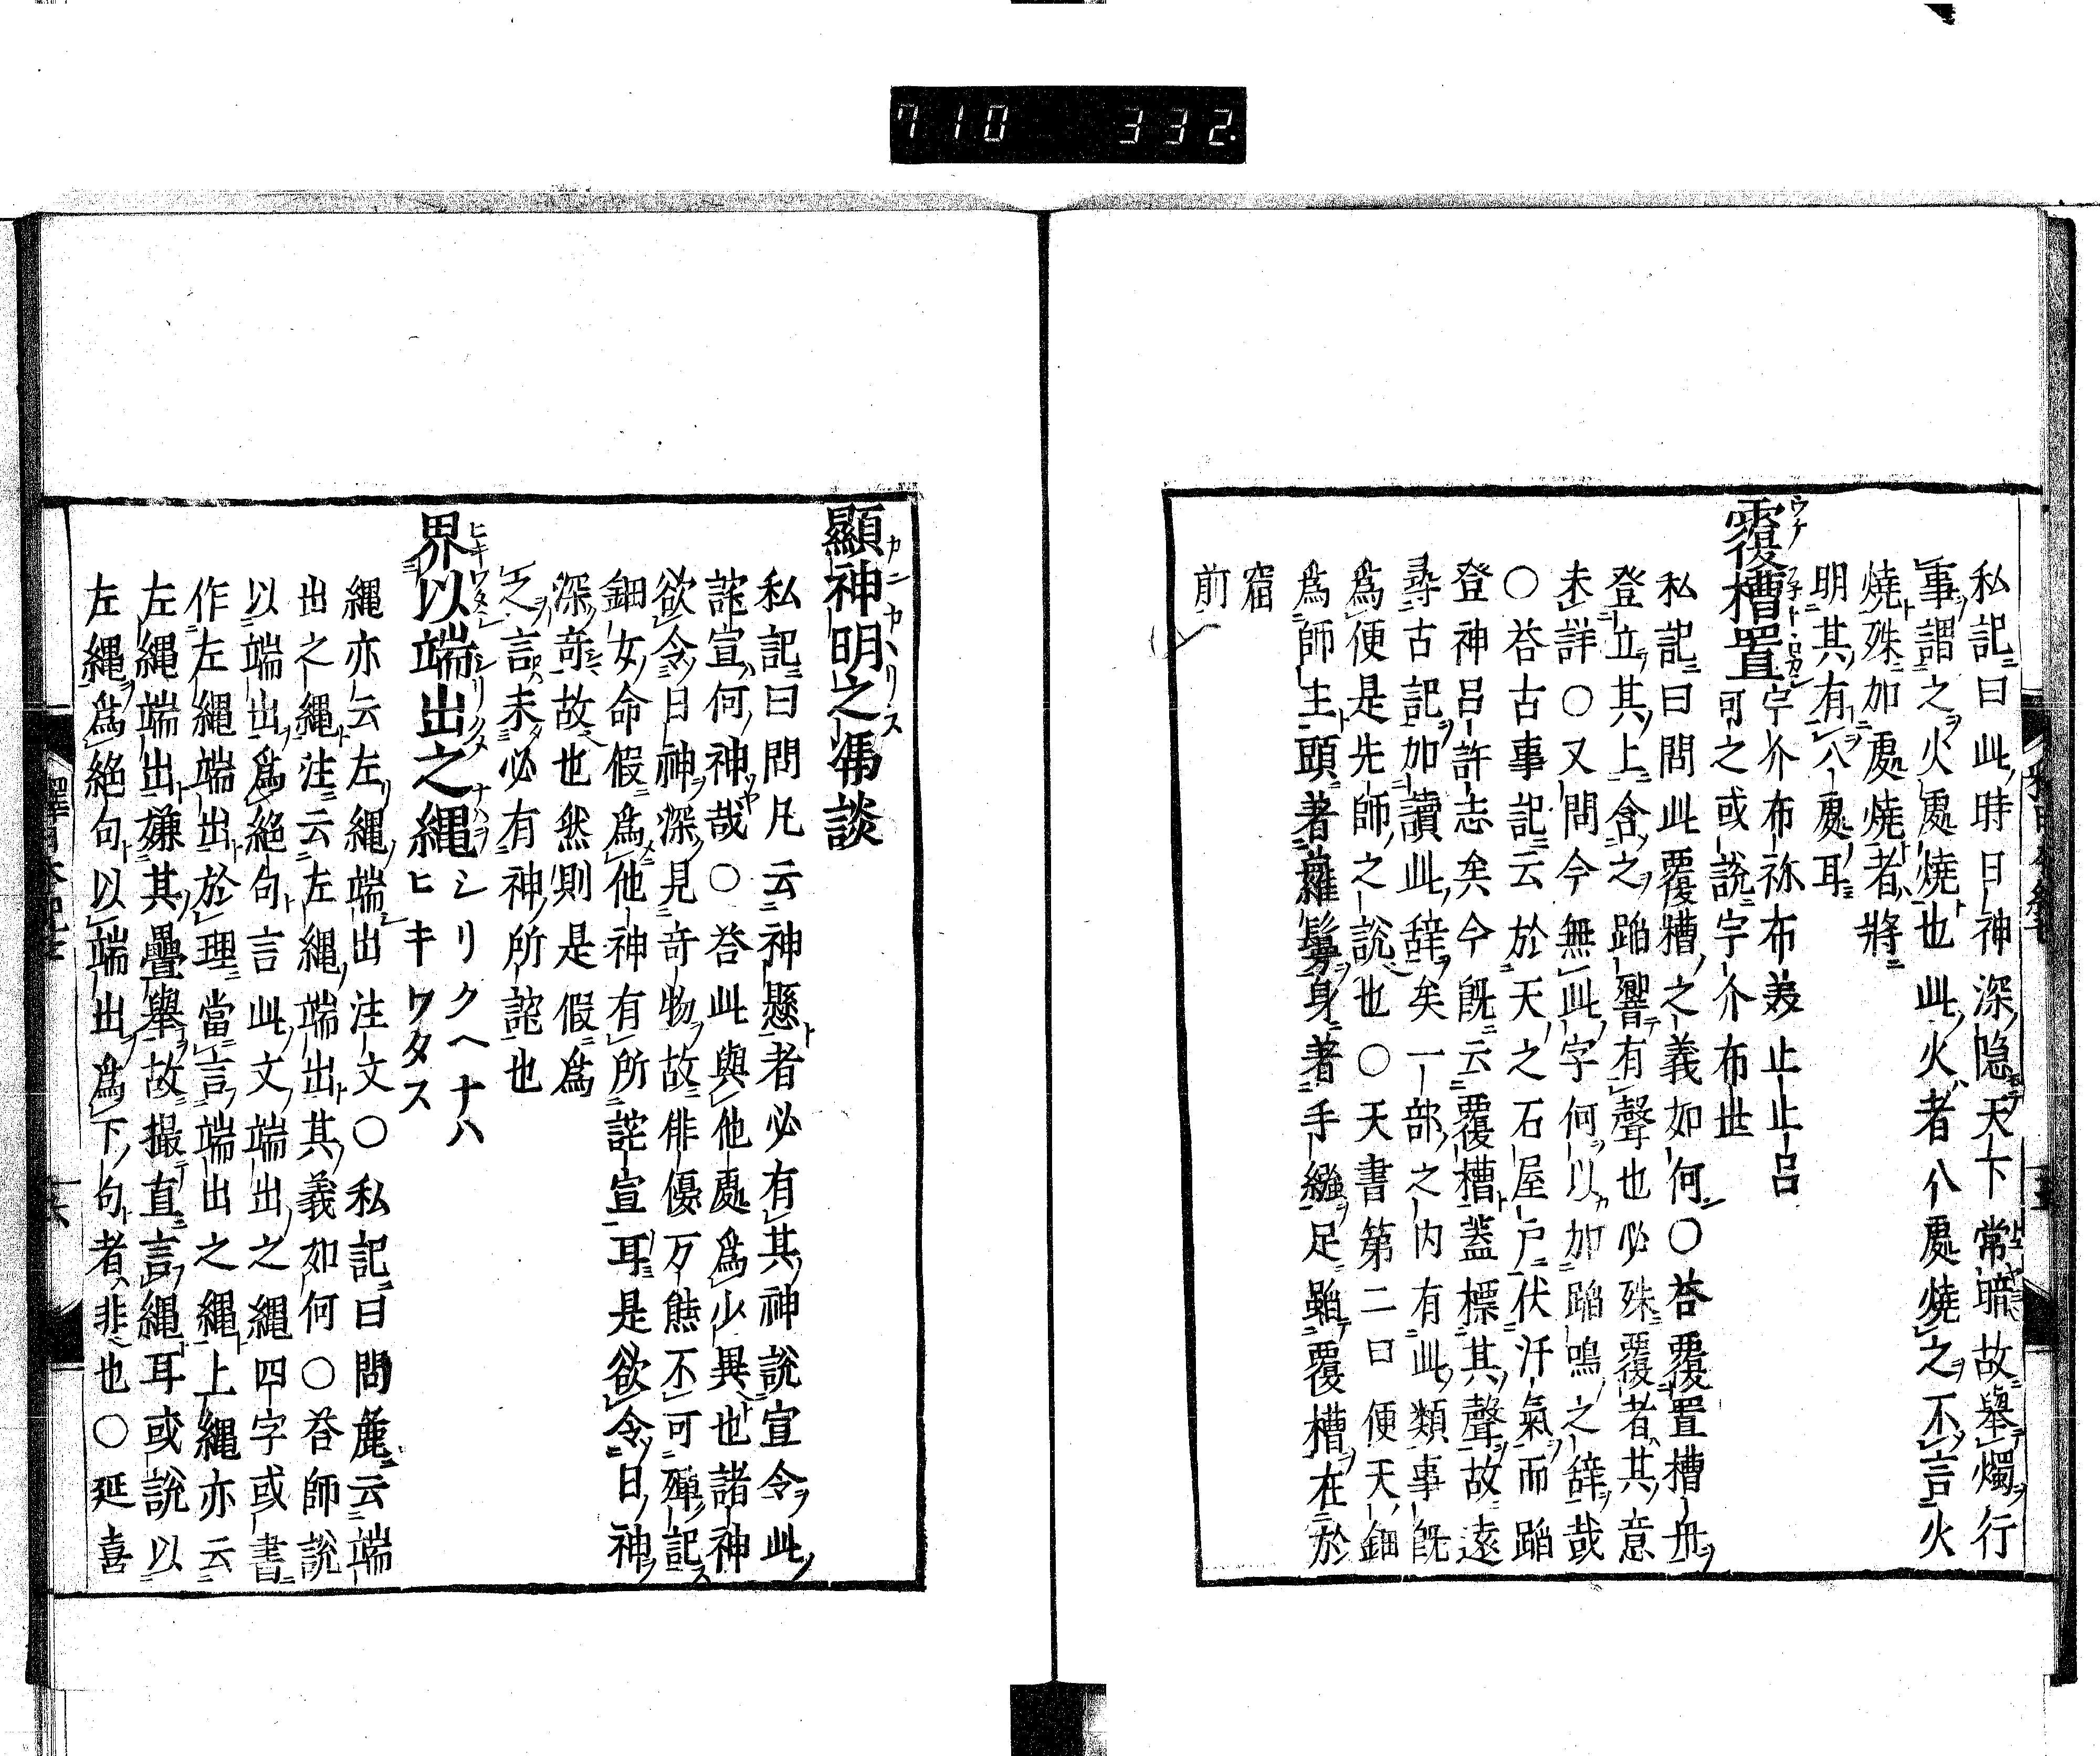 710 332.
私記曰此時日神深隠天下常暗故擧燭行
事謂之火處燒也此火者八處燒之不言火
燒殊加處燒者將
明其有八處耳
覆槽置 宇介布祢布美止止呂
可之或說宇介布世
私記曰問此覆糟之義如何○荅覆置槽舟
登立其上含之蹈響有聲也必殊覆者其意
未詳○又問今無此字何以加蹈鳴之辞哉
○荅古事記云於天之石屋户伏汙氣而蹈
登神呂許志矣今既云覆槽蓋標其聲故遠
尋古記加讀此辞矣一部之内有此類事既
爲便是先師之說也○天書第二曰便天鈿
爲師主頭著蘿鬘身著手繦足蹈覆槽在於
窟
前
顯神明之馮談
カニカヽリス
私記曰問凡云神懸者必有其神說宣令此
詫宣何神哉○荅此與他處爲少異也諸神
欲令日神深見竒物故俳優万態不可殫記
鈿女命假爲他神有所詫宣耳是欲令日神
深竒故也然則是假爲
之言未必有神所詫也
界以端出之縄 シリクヘナハ
ヒキワタス
縄亦云左縄端出注文○私記曰問麁云端
出之縄注云左縄端出其義如何○荅師說
以端出爲絕句言此文端出之縄四字或書
作左縄端出於理當言端出之縄上縄亦云
左縄端出嫌其疊擧故撮直言縄耳或說以
左縄爲絕句以端出爲下句者非也○延喜